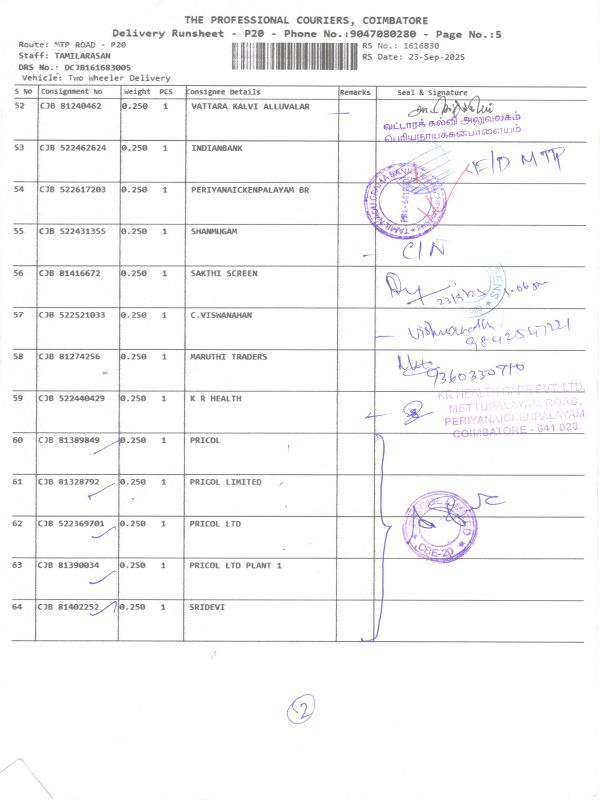 THE PROFESSIONAL COURIERS, COIMBATORE
Delivery Runsheet - P20 - Phone No.:9047080280 - Page No.:5
Route: MTP ROAD - P20 RS No.: 1616830
Staff: TAMILARASAN RS Date: 23-Sep-2025
DRS No.: DCJB161683005
Vehicle: Two Wheeler Delivery
S No Consignment No Weight PCS Consignee Details Remarks Seal & Signature
52 CJB 81240462 0.250 1 VATTARA KALVI ALLUVALAR
வட்டாரக் கல்வி அலுவலகம்
பெரியநாயக்கன்பாளையம்
53 CJB 522462624 0.250 1 INDIANBANK
F/D MTP
54 CJB 522617203 0.250 1 PERIYANAICKENPALAYAM BR
55 CJB 522431355 0.250 1 SHANMUGAM
C/N
56 CJB 81416672 0.250 1 SAKTHI SCREEN
23/9/25 1.06 pm
57 CJB 522521033 0.250 1 C.VISWANAHAN
9842547221
58 CJB 81274256 0.250 1 MARUTHI TRADERS
9360330710
59 CJB 522440429 0.250 1 K R HEALTH
KR HEALTH CARE PVT LTD,
METTUPALAYAM ROAD,
PERIYANAICKENPALAYAM
COIMBATORE - 641 020.
60 CJB 81389849 0.250 1 PRICOL
61 CJB 81328792 0.250 1 PRICOL LIMITED
62 CJB 522369701 0.250 1 PRICOL LTD
PRICOL LIMITED
CBE-20
63 CJB 81390034 0.250 1 PRICOL LTD PLANT 1
64 CJB 81402252 0.250 1 SRIDEVI
2